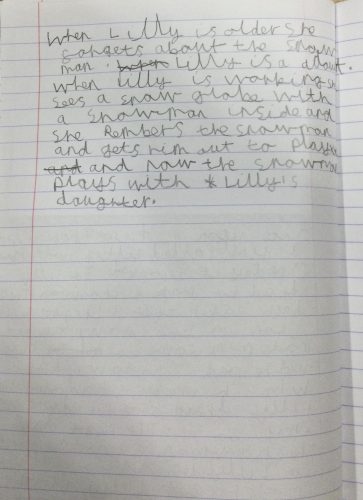 When Lilly is older she
forgets about the snow
man. when Lilly is a adult.
when Lilly is working she
sees a snow globe with
a snowman inside and
she Rembers the snowman
and gets him out to play
and and now the snowman
plays with Lilly's
daughter.